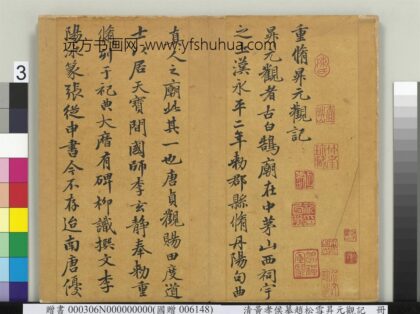 远方书画网-www.yfshuhua.com
重脩昇元觀記
昇元觀者古白鵠廟在中茅山西祠宇
之漢永平二年勅郡縣脩丹陽句曲
真人之廟此其一也唐貞觀賜田度道
士以居天寶間國師李玄靜奉勅重
脩列于祀典大曆有碑柳識撰文李
陽冰篆張從申書今不存迨南唐優
3
贈書 000306N000000000(國贈 006148) 清黃孝侯摹趙松雪昇元觀記 冊